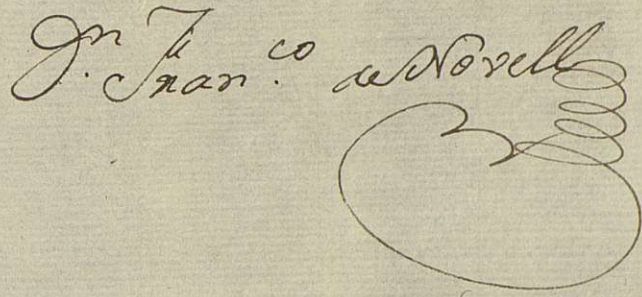 Dn. Franco. de Novell